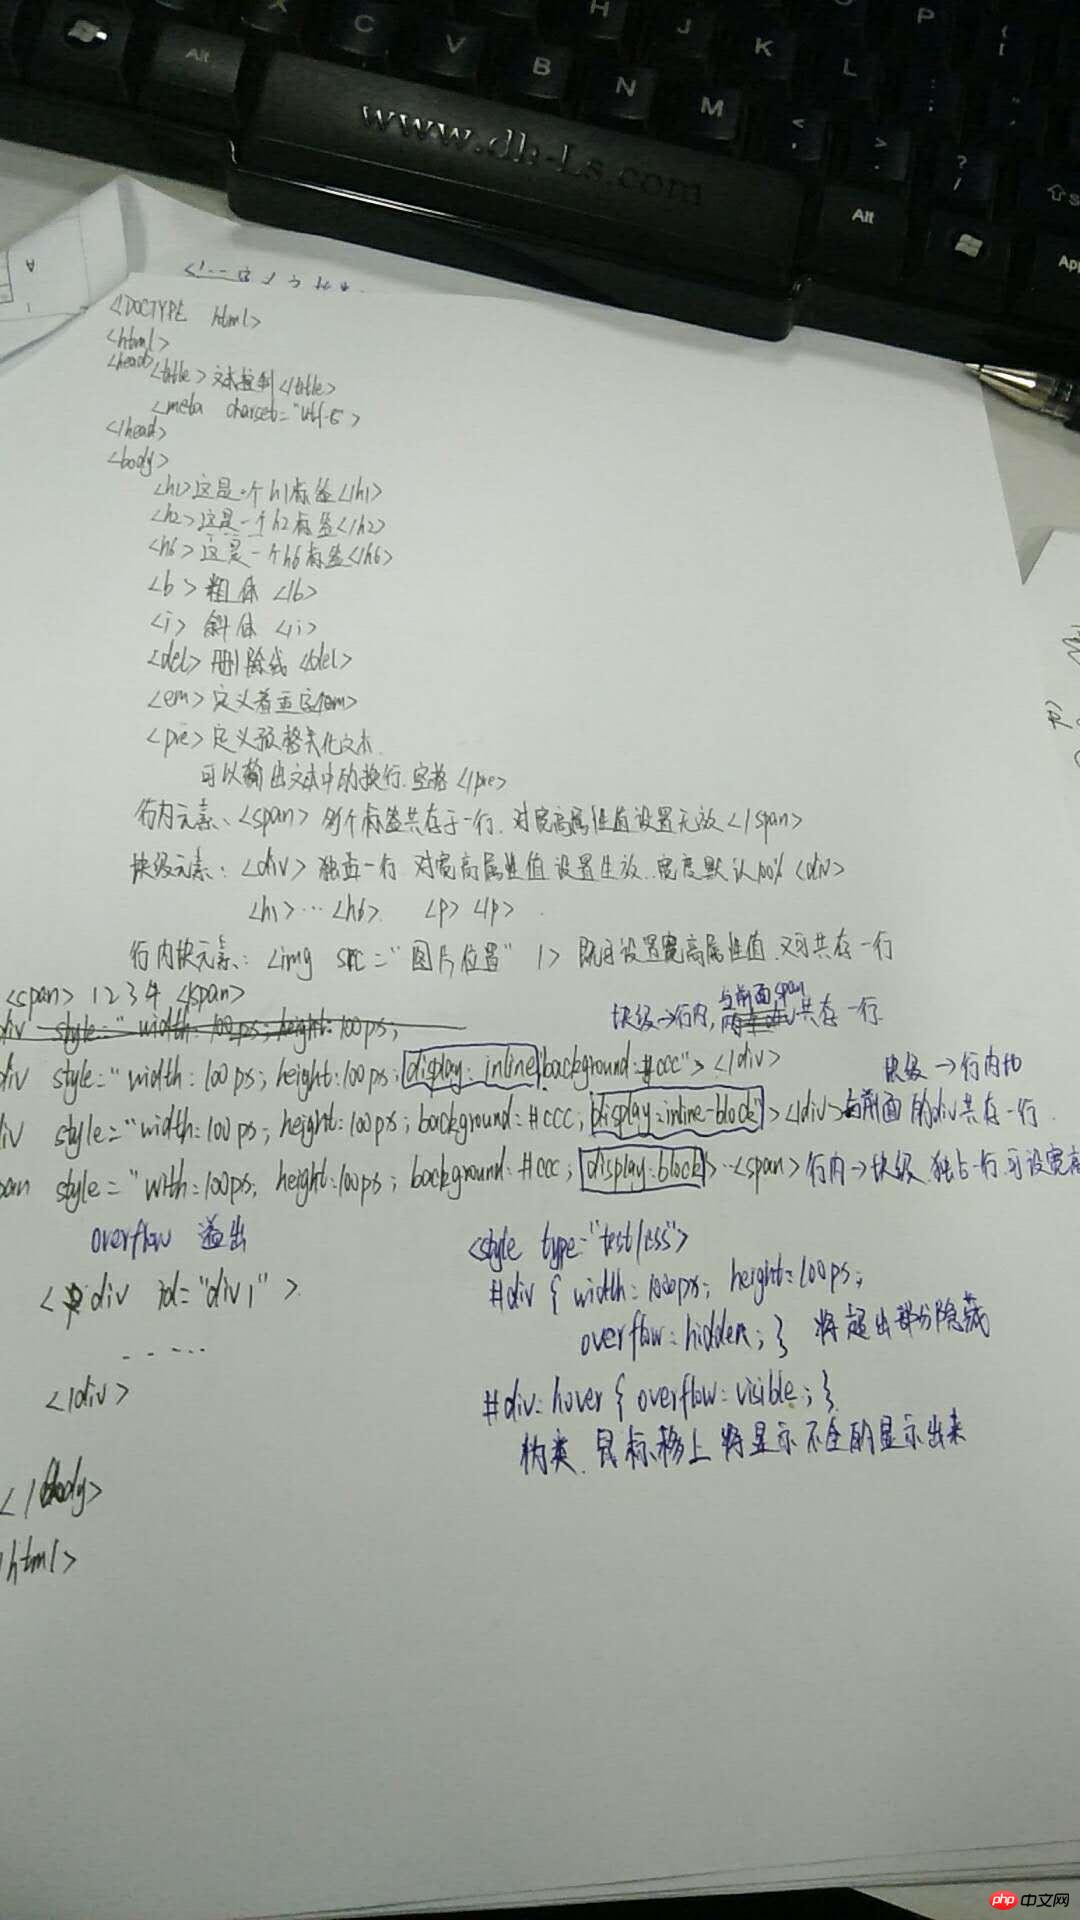 X C V B N M H J K L P
Alt
www.dh-Ls.com
Alt
App
<!--
<!DOCTYPE html>
<html>
<head>
<table>文本控制</table>
<meta charset="utf-8">
</head>
<body>
<h1>这是一个h1标签</h1>
<h2>这是一个h2标签</h2>
<h6>这是一个h6标签</h6>
<b>粗体</b>
<i>斜体</i>
<del>删除线<del>
<em>定义着重
<pre>定义预格式化文本.
可以输出文本中的换行.空格</pre>
行内元素: <span>多个标签共存于一行, 对宽高属性值设置无效</span>
块级元素: <div>独占一行 对宽高属性值设置生效..宽度默认100%<div>
<h1>…<h6>. <p><p>.
行内块元素: <img src="图片位置" /> 既可设置宽高属性值.又可共存一行
<span>1234</span>
div style="width:100ps; height:100ps;
块级→行内, 与前面span共存一行.
div style="width:100ps; height:100ps; display: inline background:#ccc"></div>
块级→行内块
div style="width:100ps; height:100ps; background:#ccc; display:inline-block"></div>与前面的div共存一行.
pan style="with:100ps; height:100ps; background:#ccc; display:block>..<span>行内→块级.独占一行.可设宽高
overflow 溢出
<style type="test/css">
<div id="div1">
#div { width:100ps; height:100ps;
overflow:hidden; } 将超出部分隐藏
.....
</div>
#div:hover { overflow:visible; }
伪类.鼠标移上将显示不全的显示出来
</body>
/html>
php 中文网